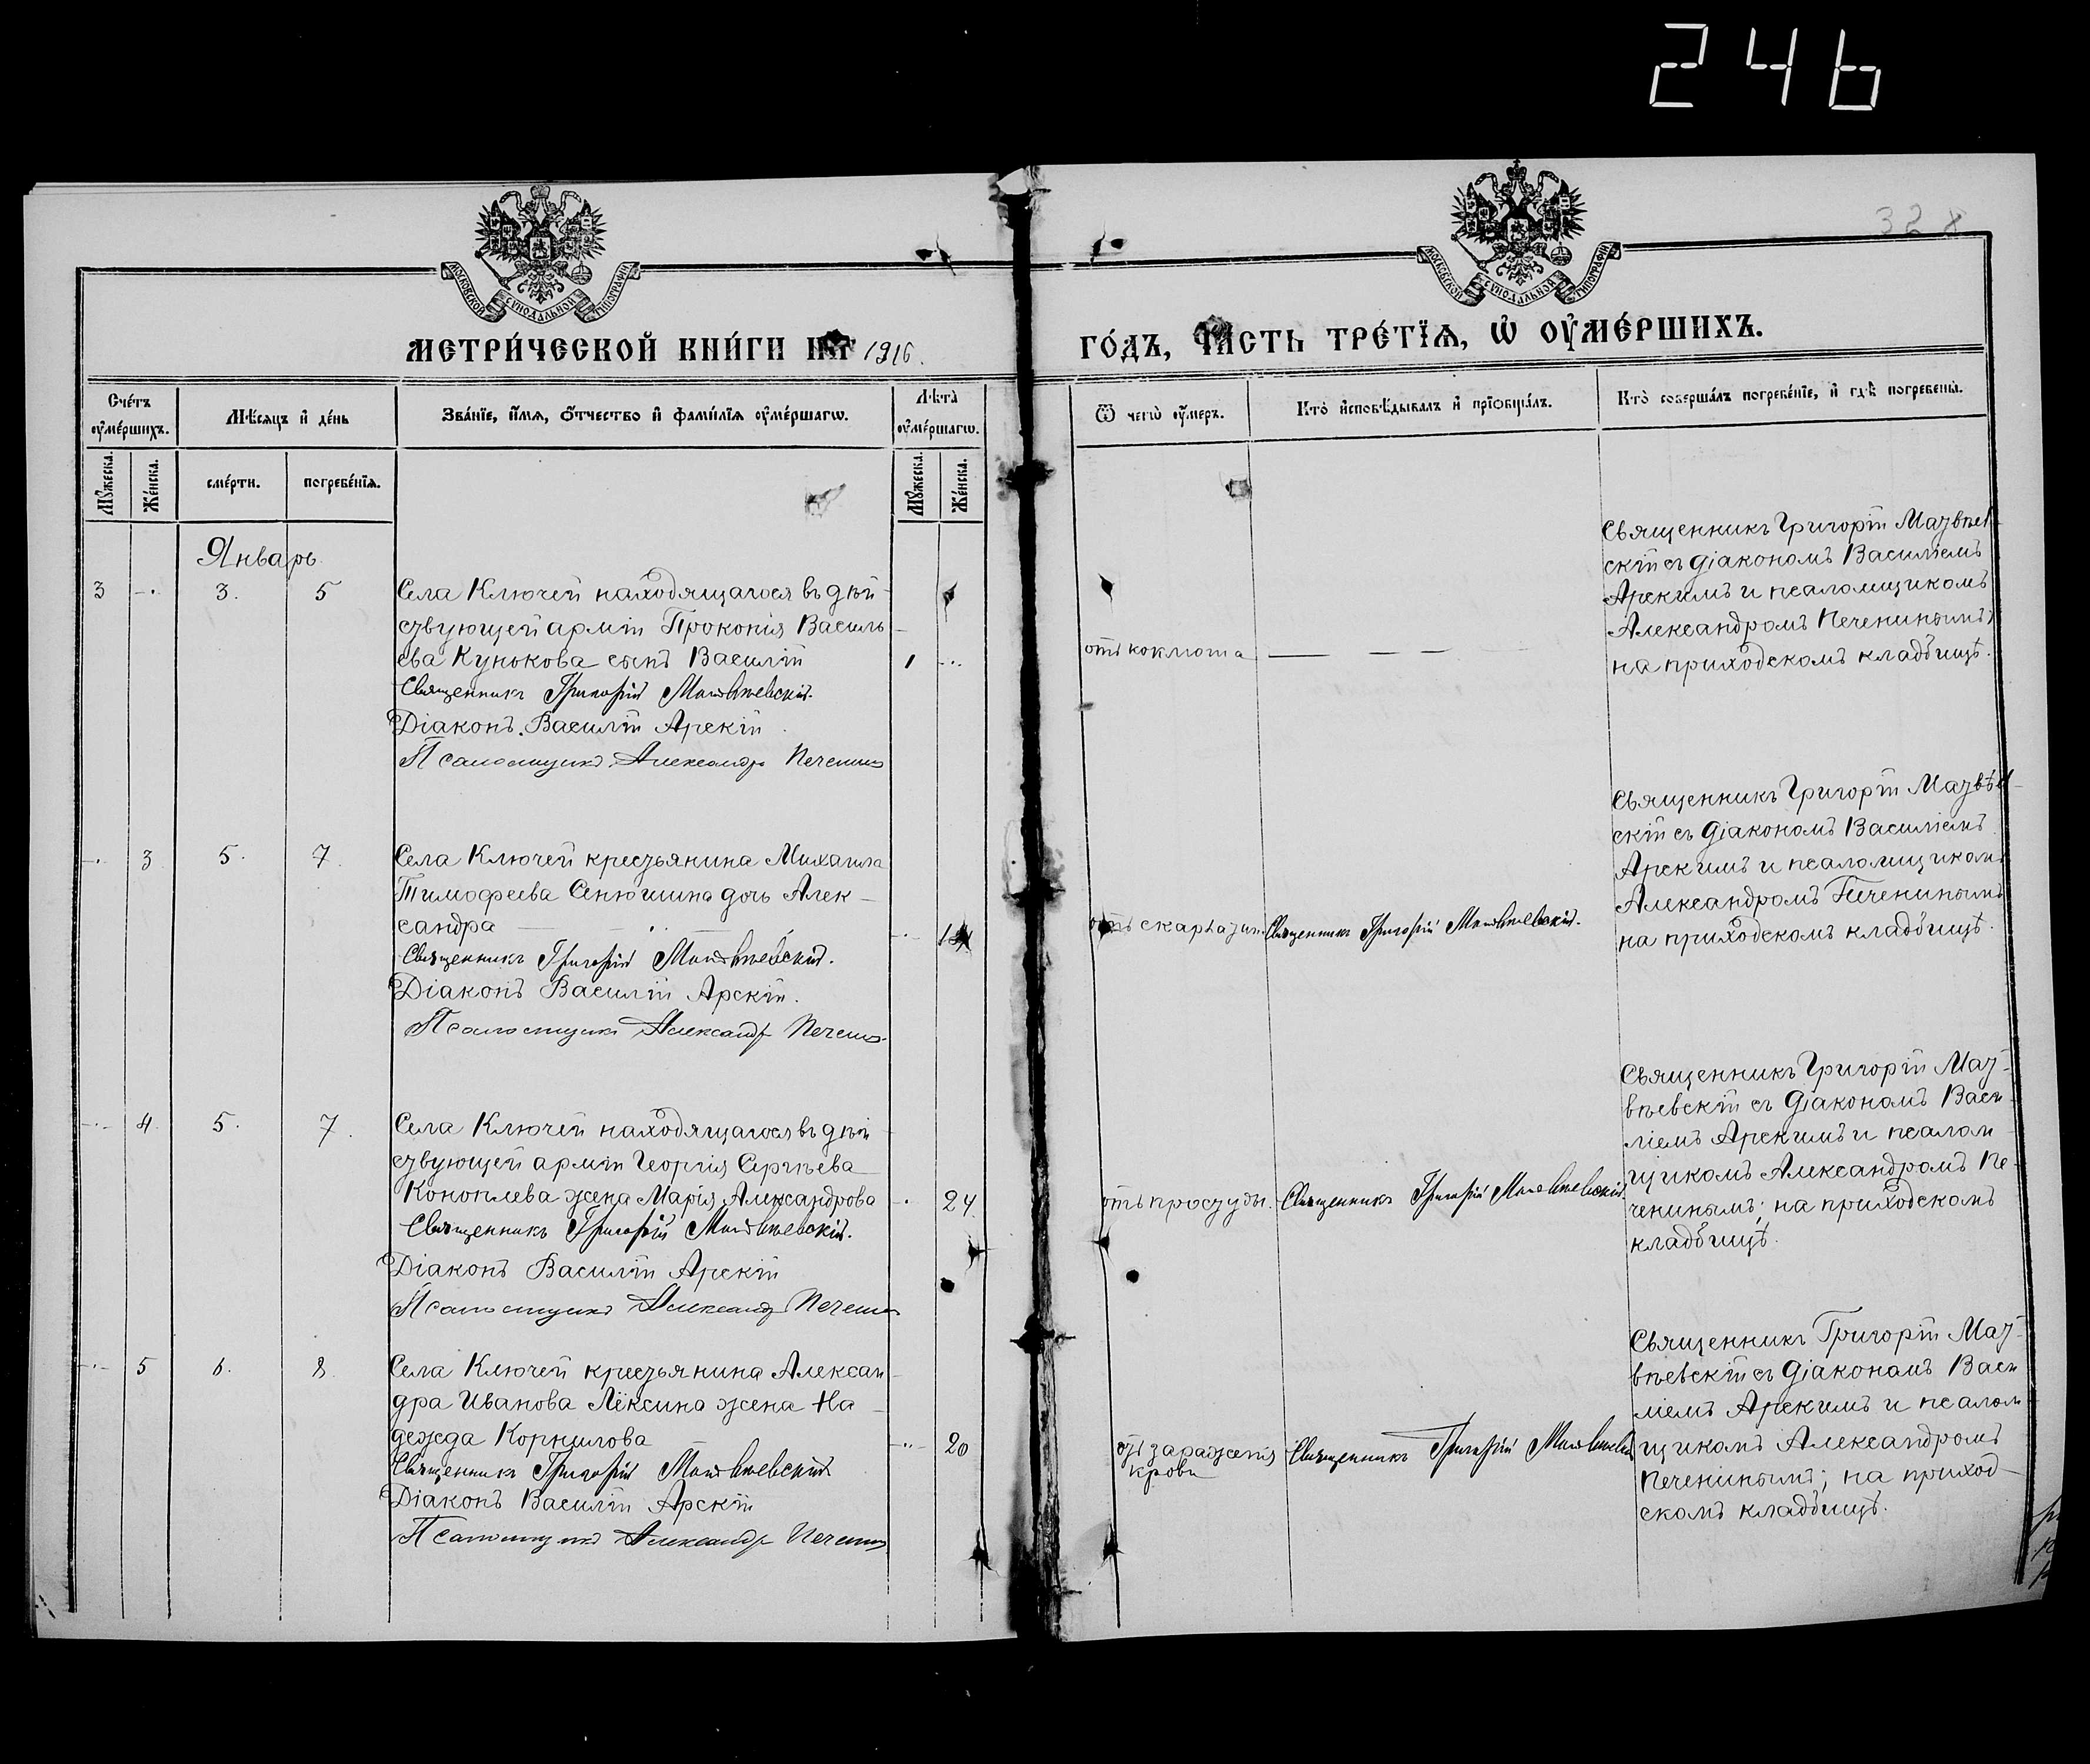 246
328
МОСКОВСКОЙ СѴНОДАЛЬНОЙ ТИПОГРАФІИ
МОСКОВСКОЙ СѴНОДАЛЬНОЙ ТИПОГРАФІИ
МЕТРИ́ЧЕСКОЙ КНИ́ГИ НА 1916.
ГО́ДЪ, ЧАСТЬ ТРЕ́ТЇѦ, Ѡ҆ ОУ҆МЕ́РШИХЪ.
Сче́тъ оу҆ме́ршихъ.
Мѣ́сяцъ и҆ де́нь
Зва́нїе, и҆́мя, ѻ҆́тчество и҆ фами́лїя оу҆ме́ршагѡ.
Лѣта̀ оу҆ме́ршагѡ.
Ѿ чегѡ̀ оу҆́меръ.
Кто̀ и҆сповѣ́дывалъ и҆ прїѻбща́лъ.
Кто̀ соверша́лъ погребе́нїе, и҆ гдѣ̀ погребены̀.
Мꙋ́жеска.
Же́нска.
сме́рти.
погребе́нїя.
Мꙋ́жеска.
Же́нска.
Январь
3 3. 5
Села Ключей находящагося въ дѣй-
ствующей арміи Прокопія Василь-
ева Кунокова сынъ Василій
Священникъ Григорій Матвѣевскій.
Діаконъ Василій Арскій
Псаломщикъ Александръ Печенинъ
1
отъ коклюша
Священникъ Григорій Матвѣев-
скій съ діакономъ Василіемъ
Арскимъ и псаломщикомъ
Александромъ Печенинымъ,
на приходскомъ кладбищѣ.
3 5. 7.
Села Ключей крестьянина Михаила
Тимофеева Сенюшина дочь Алек-
сандра
Священникъ Григорій Матвѣевскій.
Діаконъ Василій Арскій.
Псаломщикъ Александръ Печенинъ.
Священникъ Григорій Матвѣевскій.
Священникъ Григорій Матвѣев-
скій съ діакономъ Василіемъ
Арскимъ и псаломщикомъ
Александромъ Печенинымъ
на приходскомъ кладбищѣ.
4 5. 7.
Села Ключей находящагося въ дѣй-
ствующей арміи Георгія Сергѣева
Коноплева жена Марія Александрова
Священникъ Григорій Матвѣевскій.
Діаконъ Василій Арскій
Псаломщикъ Александръ Печенинъ
24
отъ простуды.
Священникъ Григорій Матвѣевскій.
Священникъ Григорій Мат-
вѣевскій съ діакономъ Васи-
ліемъ Арскимъ и псалом-
щикомъ Александромъ Пе-
ченинымъ; на приходскомъ
кладбищѣ.
5 6. 8.
Села Ключей крестьянина Алексан-
дра Иванова Лёксина жена На-
дежда Корнилова
Священникъ Григорій Матвѣевскій
Діаконъ Василій Арскій
Псаломщикъ Александръ Печенинъ
20
отъ зараженія
крови
Священникъ Григорій Матвѣевскій
Священникъ Григорій Мат-
вѣевскій съ діакономъ Васи-
ліемъ Арскимъ и псалом-
щикомъ Александромъ
Печенинымъ; на приход-
скомъ кладбищѣ.